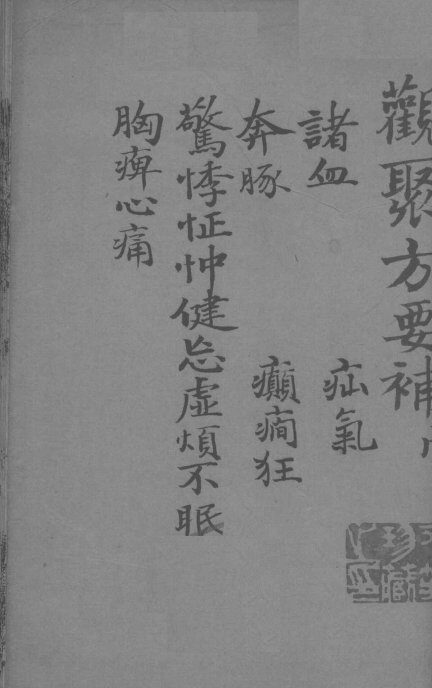 觀聚方要補
諸血 疝氣
奔豚 癲癇狂
驚悸怔忡健忘虛煩不眠
胸痺心痛